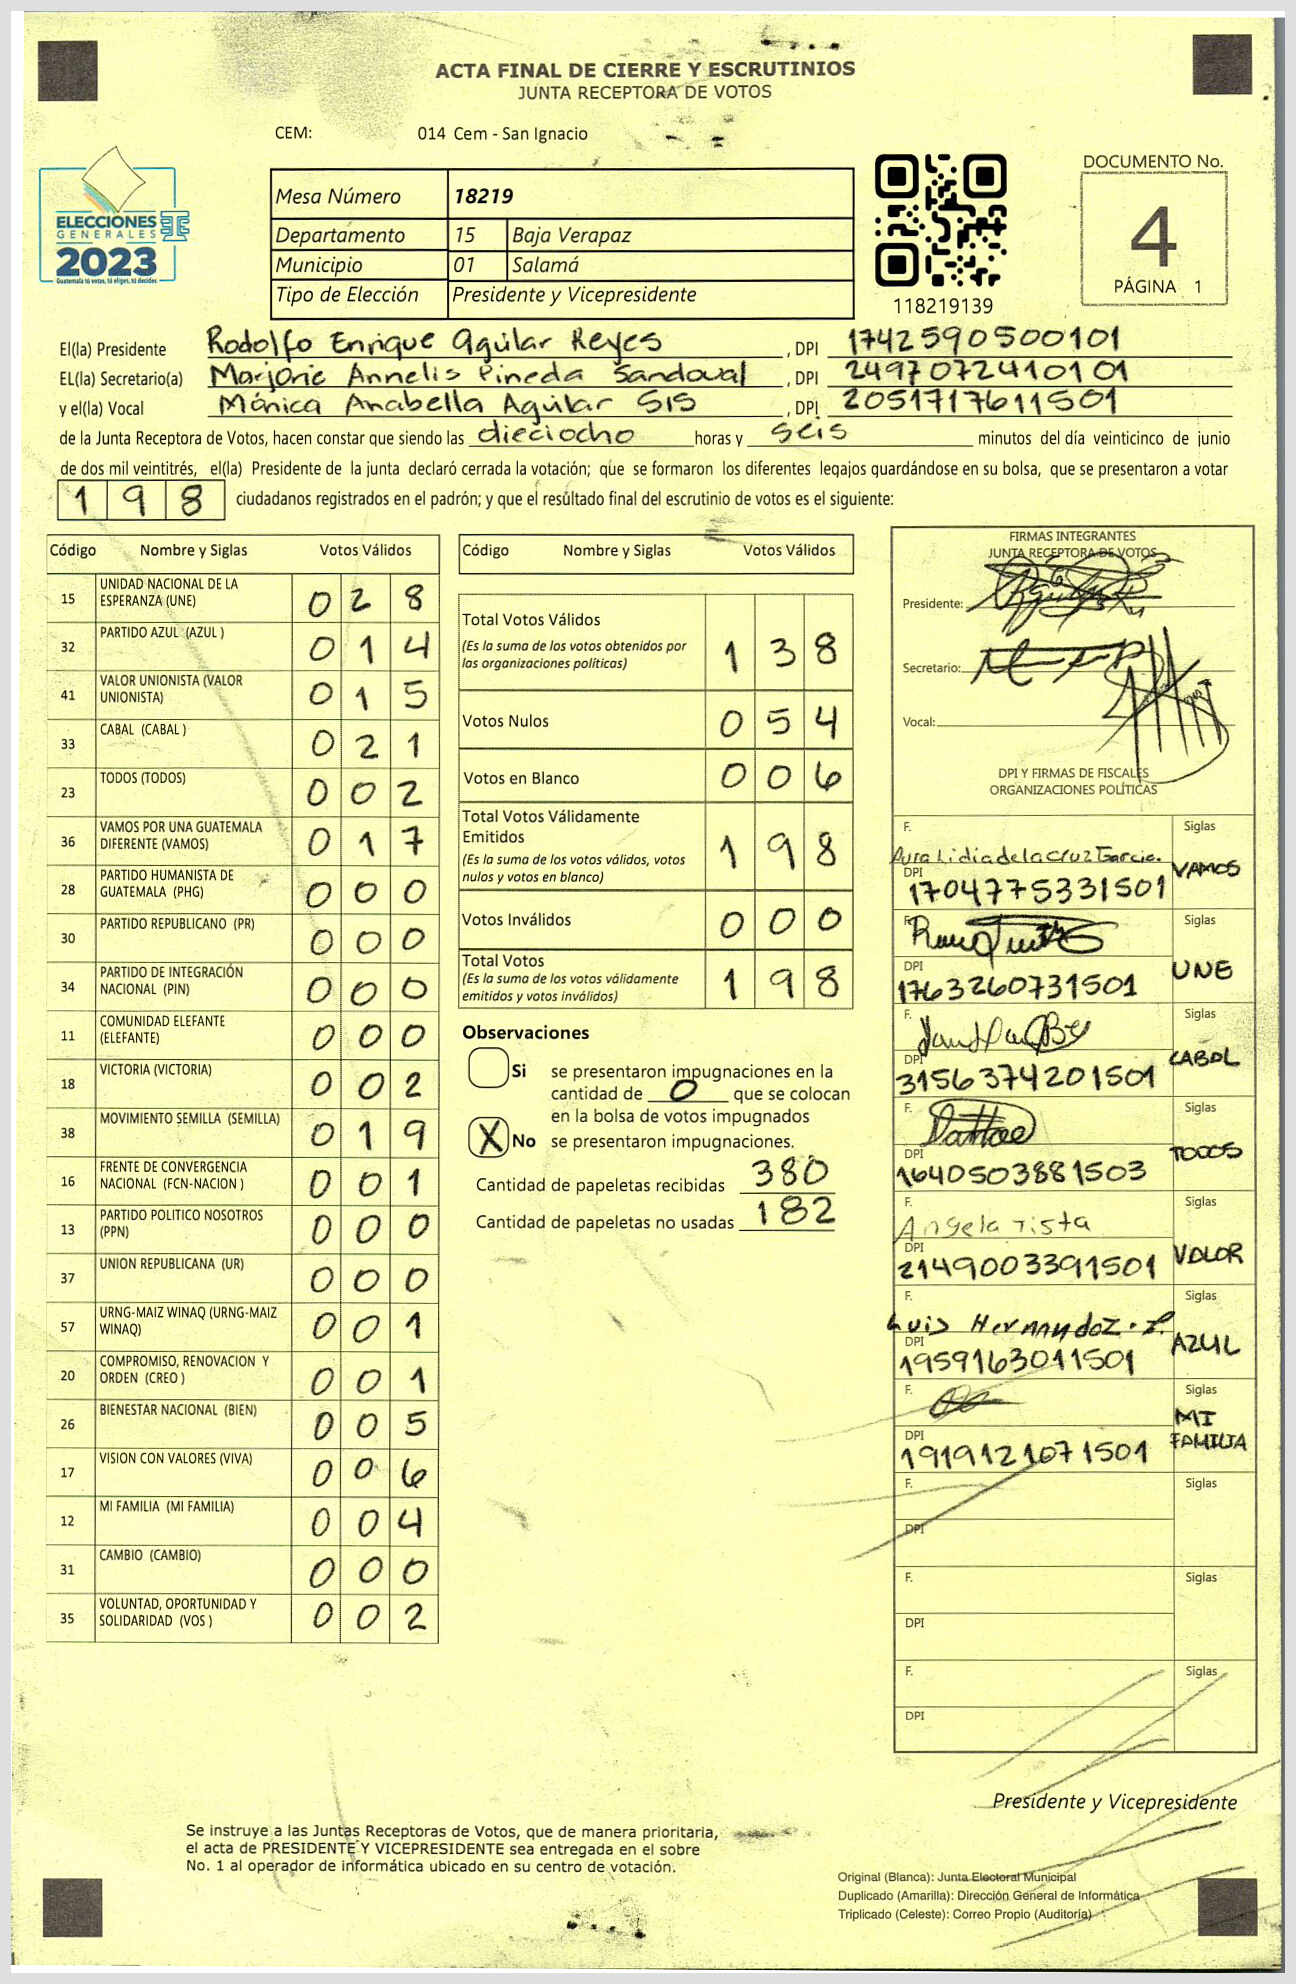 ACTA FINAL DE CIERRE Y ESCRUTINIOS
JUNTA RECEPTORA DE VOTOS
CEM: 014 Cem - San Ignacio
ELECCIONES
GENERALES
2023
Guatemala tú votas, tú eliges, tú decides
Mesa Número 18219
Departamento 15 Baja Verapaz
Municipio 01 Salamá
Tipo de Elección Presidente y Vicepresidente
118219139
DOCUMENTO No.
4
PÁGINA 1
El(la) Presidente Rodolfo Enrique Aguilar Reyes, DPI 1742590500101
EL(la) Secretario(a) Marjorie Annelis Pineda Sandoval, DPI 2497072410101
y el(la) Vocal Mónica Anabella Aguilar Sis, DPI 2051717611501
de la Junta Receptora de Votos, hacen constar que siendo las dieciocho horas y seis minutos del día veinticinco de junio
de dos mil veintitrés, el(la) Presidente de la junta declaró cerrada la votación; que se formaron los diferentes legajos guardándose en su bolsa, que se presentaron a votar
198 ciudadanos registrados en el padrón; y que el resultado final del escrutinio de votos es el siguiente:
Código Nombre y Siglas Votos Válidos
15 UNIDAD NACIONAL DE LA ESPERANZA (UNE) 028
32 PARTIDO AZUL (AZUL ) 014
41 VALOR UNIONISTA (VALOR UNIONISTA) 015
33 CABAL (CABAL ) 021
23 TODOS (TODOS) 002
36 VAMOS POR UNA GUATEMALA DIFERENTE (VAMOS) 017
28 PARTIDO HUMANISTA DE GUATEMALA (PHG) 000
30 PARTIDO REPUBLICANO (PR) 000
34 PARTIDO DE INTEGRACIÓN NACIONAL (PIN) 000
11 COMUNIDAD ELEFANTE (ELEFANTE) 000
18 VICTORIA (VICTORIA) 002
38 MOVIMIENTO SEMILLA (SEMILLA) 019
16 FRENTE DE CONVERGENCIA NACIONAL (FCN-NACION ) 001
13 PARTIDO POLITICO NOSOTROS (PPN) 000
37 UNION REPUBLICANA (UR) 000
57 URNG-MAIZ WINAQ (URNG-MAIZ WINAQ) 001
20 COMPROMISO, RENOVACION Y ORDEN (CREO ) 001
26 BIENESTAR NACIONAL (BIEN) 005
17 VISION CON VALORES (VIVA) 006
12 MI FAMILIA (MI FAMILIA) 004
31 CAMBIO (CAMBIO) 000
35 VOLUNTAD, OPORTUNIDAD Y SOLIDARIDAD (VOS ) 002
Código Nombre y Siglas Votos Válidos
Total Votos Válidos 138
(Es la suma de los votos obtenidos por
las organizaciones políticas)
Votos Nulos 054
Votos en Blanco 006
Total Votos Válidamente
Emitidos 198
(Es la suma de los votos válidos, votos
nulos y votos en blanco)
Votos Inválidos 000
Total Votos 198
(Es la suma de los votos válidamente
emitidos y votos inválidos)
Observaciones
Si se presentaron impugnaciones en la
cantidad de 0 que se colocan
en la bolsa de votos impugnados
X No se presentaron impugnaciones.
Cantidad de papeletas recibidas 380
Cantidad de papeletas no usadas 182
FIRMAS INTEGRANTES
JUNTA RECEPTORA DE VOTOS
Presidente:
Secretario:
Vocal:
DPI Y FIRMAS DE FISCALES
ORGANIZACIONES POLÍTICAS
F. Aura Lidia de la Cruz Garcia. Siglas
DPI 1704775331501 VAMOS
F. Siglas
DPI 1763260731501 UNE
F. Siglas
DPI 3156374201501 CABAL
F. Siglas
DPI 1640503881503 TODOS
F. Angela Tista Siglas
DPI 2149003391501 VALOR
F. Luis Hernandez Siglas
DPI 1959163011501 AZUL
F. Siglas
DPI 1919121071501 MI FAMILIA
F. Siglas
DPI
F. Siglas
DPI
F. Siglas
DPI
Presidente y Vicepresidente
Se instruye a las Juntas Receptoras de Votos, que de manera prioritaria,
el acta de PRESIDENTE Y VICEPRESIDENTE sea entregada en el sobre
No. 1 al operador de informática ubicado en su centro de votación.
Original (Blanca): Junta Electoral Municipal
Duplicado (Amarilla): Dirección General de Informática
Triplicado (Celeste): Correo Propio (Auditoría)